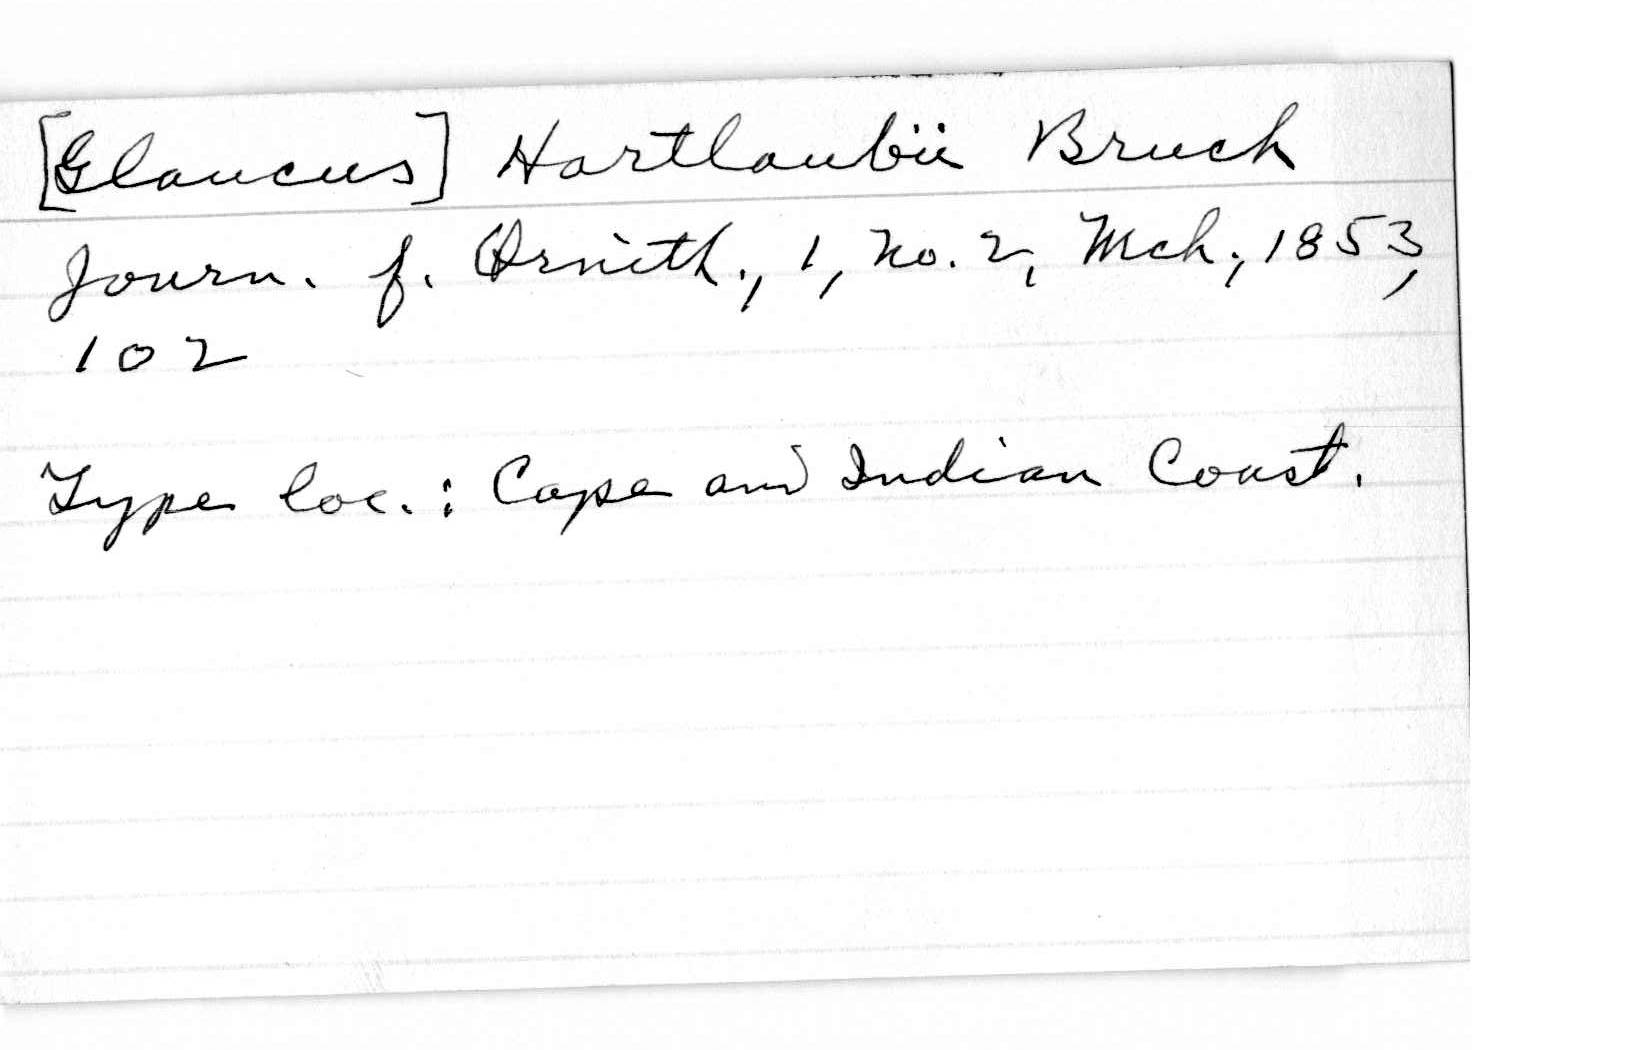 [Glaucus] Hartlaubii Bruch
Journ. f. Ornith., 1, no. 2, Mch, 1853,
102
Type loc.: Cape and Indian Coast.